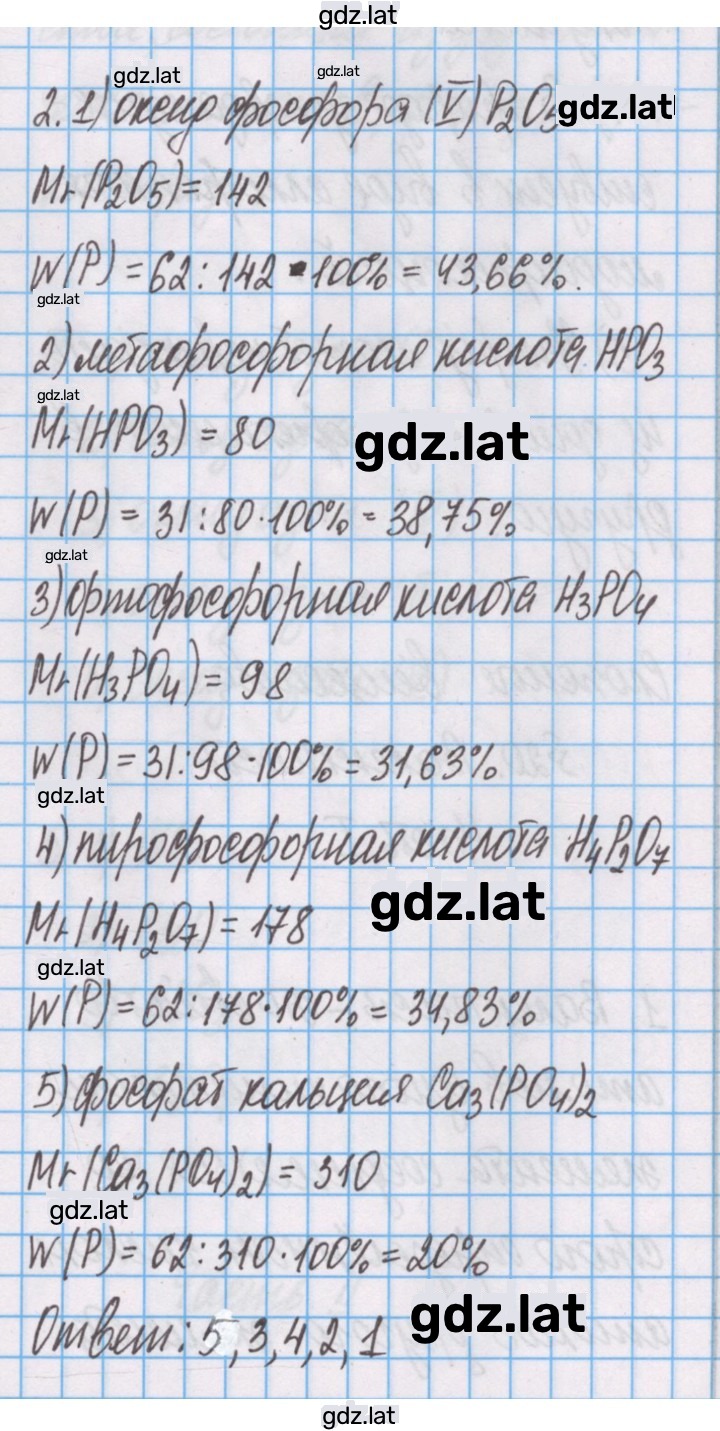 gdz.lat
gdz.lat
gdz.lat
2. 1) оксид фосфора (V) P₂O₅ gdz.lat
Mr(P₂O₅) = 142
W(P) = 62 : 142 · 100% = 43,66%.
gdz.lat
2) метафосфорная кислота HPO₃
gdz.lat
Mr(HPO₃) = 80
gdz.lat
W(P) = 31 : 80 · 100% = 38,75%
gdz.lat
3) ортофосфорная кислота H₃PO₄
Mr(H₃PO₄) = 98
W(P) = 31 : 98 · 100% = 31,63%
gdz.lat
4) пирофосфорная кислота H₄P₂O₇
gdz.lat
Mr(H₄P₂O₇) = 178
gdz.lat
W(P) = 62 : 178 · 100% = 34,83%
5) фосфат кальция Ca₃(PO₄)₂
Mr(Ca₃(PO₄)₂) = 310
gdz.lat
W(P) = 62 : 310 · 100% = 20%
gdz.lat
Ответ: 5, 3, 4, 2, 1
gdz.lat